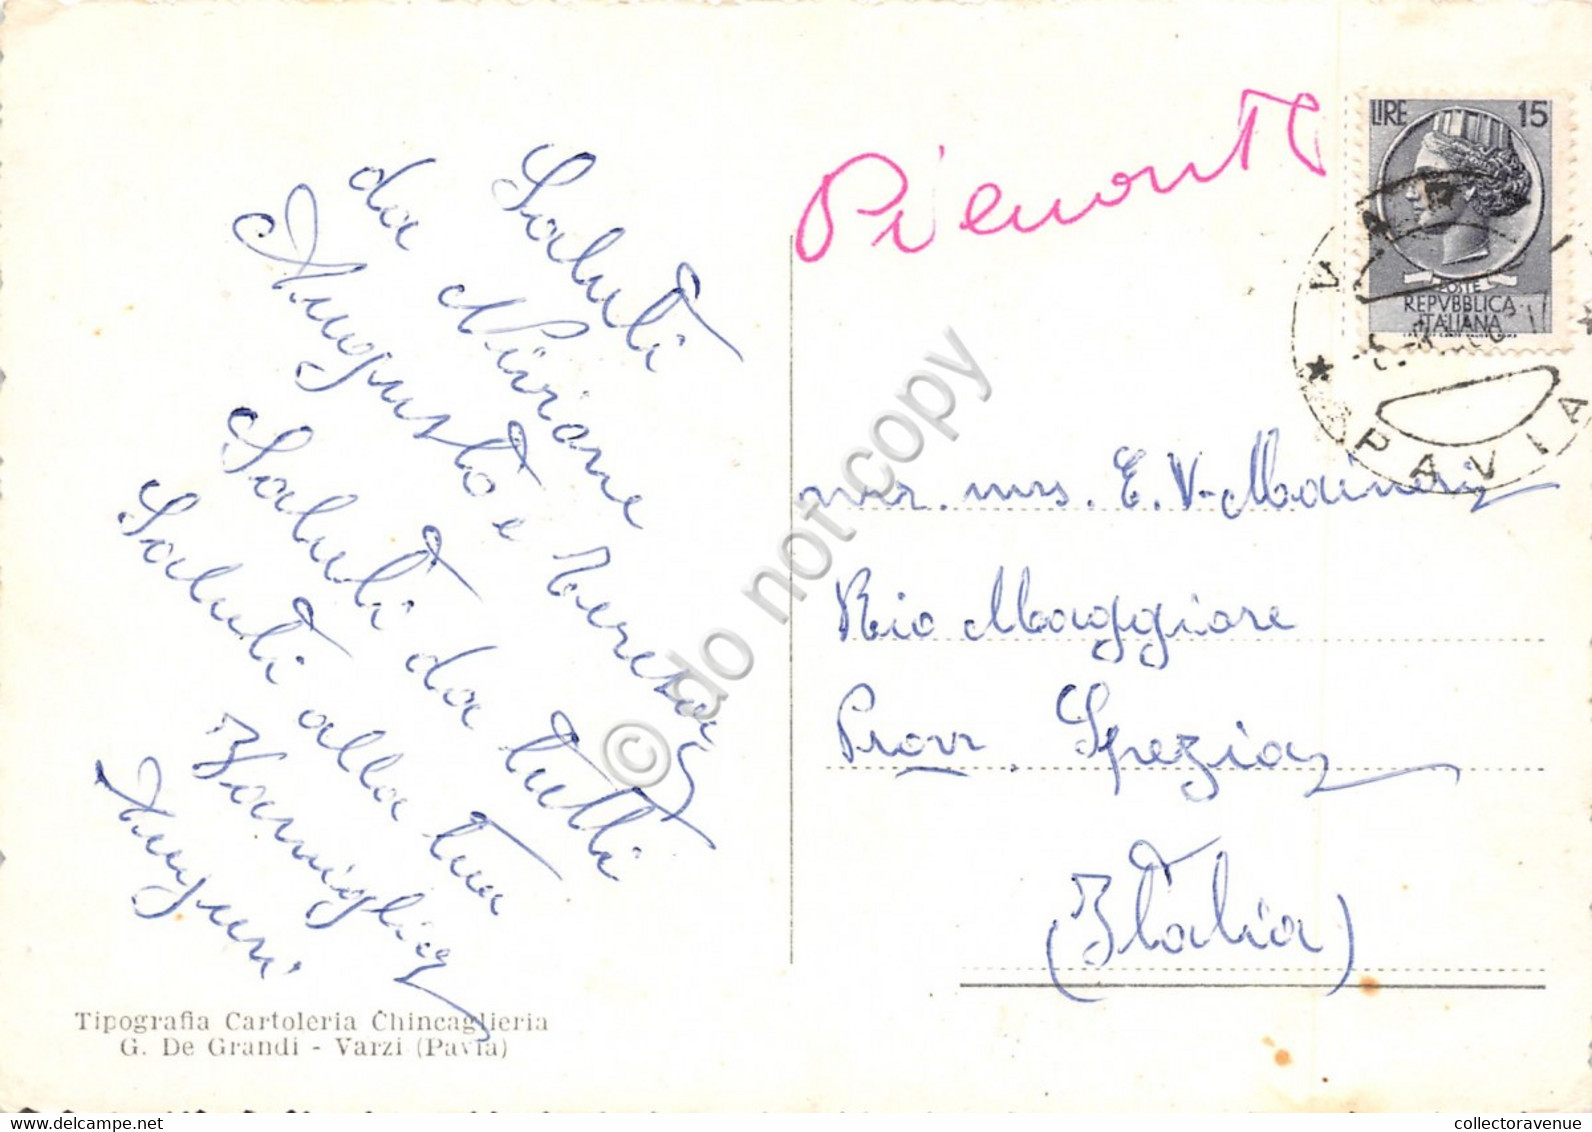 Saluti
da Miriane
Augusto e Teresa
Saluti da tutti
Saluti alla tua
Famiglia
Auguri
Piemonte
LIRE 15
POSTE
REPVBBLICA
ITALIANA
VARZI
PAVIA
mr. mrs. E. V. Maineri
Rio Maggiore
Prov Spezia
(Italia)
Tipografia Cartoleria Chincaglieria
G. De Grandi - Varzi (Pavia)
© do not copy
collectoravenue.com